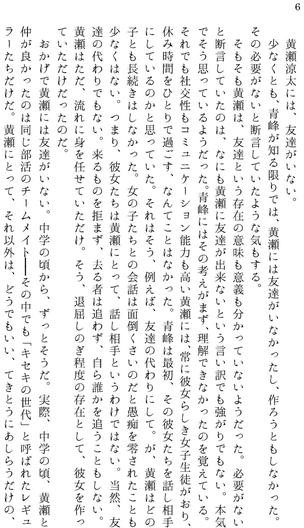 6
黄瀬涼太には、友達がいない。
少なくとも、青峰が知る限りでは、黄瀬には友達がいなかったし、作ろうともしなかった。
その必要がないと断言していたような気もする。
そもそも黄瀬は、友達という存在の意味も意義も分かっていないようだった。必要がない
と断言していたのは、なにも黄瀬に友達が出来ないという言い訳でも強がりでもない。本気
でそう思っているようだった。青峰にはその考えがまず、理解できなかったのを覚えている。
それでも社交性もコミュニケーション能力も高い黄瀬には、常に彼女らしき女子生徒がおり、
休み時間をひとりで過ごす、なんてことはなかった。青峰は最初、その彼女たちを話し相手
にしているのかと思っていた。それはそう、例えば、友達の代わりにして。が、黄瀬はどの
子とも長続きはしなかった。女の子たちとの会話は面倒くさいのだと愚痴を零されたことも
少なくはない。つまり、彼女たちは黄瀬にとって、話し相手というわけではない。当然、友
達の代わりでもない。来るものを拒まず、去る者は追わず、自ら誰かを追うこともしない。
黄瀬はただ、流れに身を任せていただけ。そう、退屈しのぎ程度の存在として、彼女を作っ
ていただけだったのだ。
おかげで黄瀬には友達がいない。中学の頃から、ずっとそうだ。実際、中学の頃、黄瀬と
仲が良かったのは同じ部活のチームメイト――その中でも「キセキの世代」と呼ばれたレギュ
ラーたちだけだ。黄瀬にとって、それ以外は、どうでもいい、てきとうにあしらうだけの、